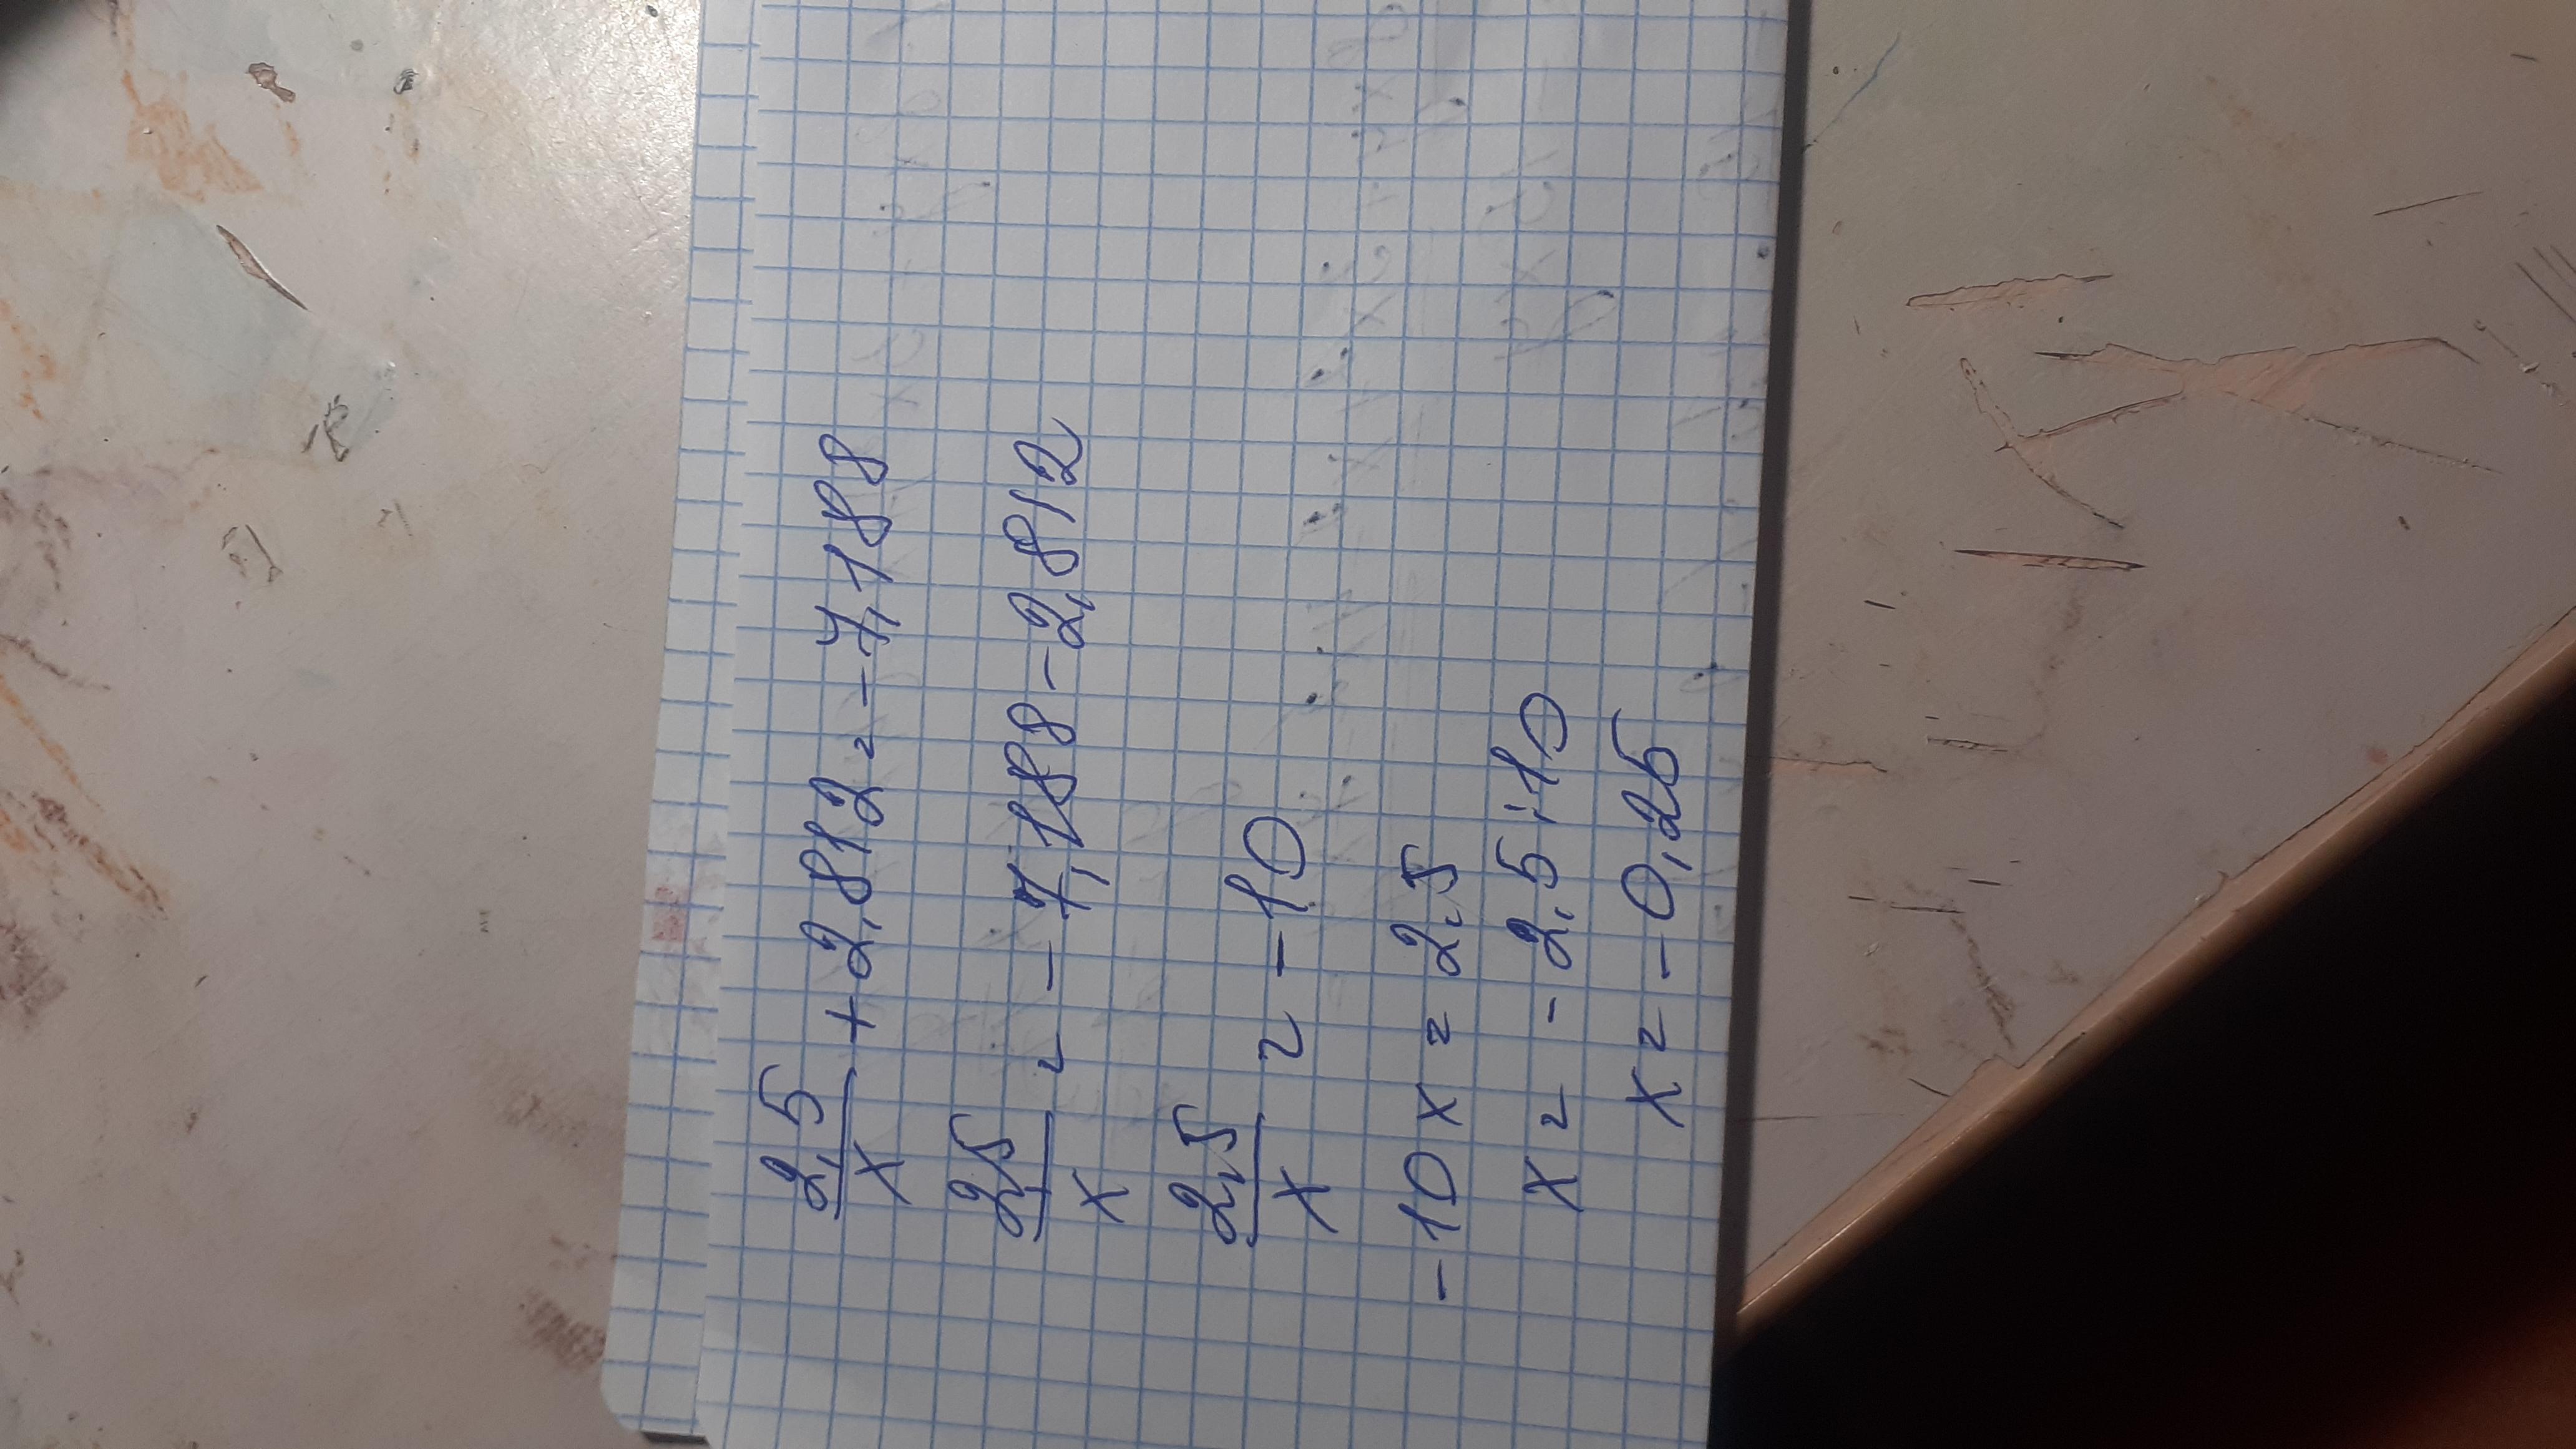 2,5/x + 2,812 = -7,188
2,5/x = -7,188 - 2,812
2,5/x = -10
-10x = 2,5
x = -2,5 : 10
x = -0,25